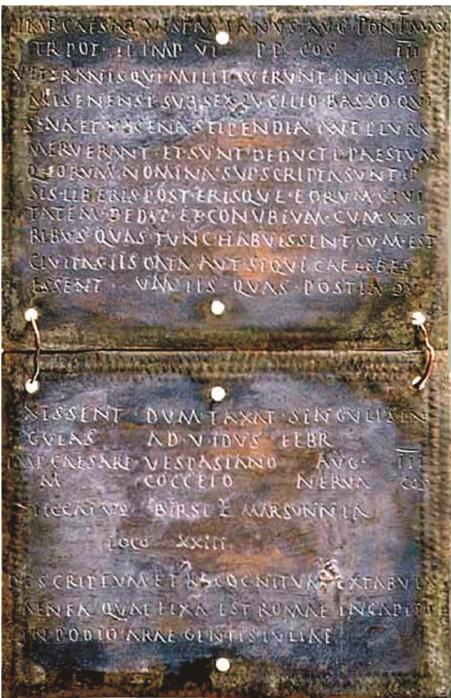 IMP CAESAR VESPASIANVS AVG PONT MAX
TR POT II IMP VI P P COS III
VETERANIS QVI MILITAVERVNT IN CLASSE
MISENENSI SVB SEX LVCILIO BASSO QVI
SENA ET VICENA STIPENDIA AVT PLVRA
MERVERANT ET SVNT DEDVCTI PAESTVM
QVORVM NOMINA SVBSCRIPTA SVNT IP
SIS LIBERIS POSTERISQVE EORVM CIVI
TATEM DEDIT ET CONVBIVM CVM VXO
RIBVS QVAS TVNC HABVISSENT CVM EST
CIVITAS IIS DATA AVT SI QVI CAELIBES
ESSENT CVM IIS QVAS POSTEA DV
XISSENT DVMTAXAT SINGVLI SIN
GVLAS AD V IDVS FEBR
IMP CAESARE VESPASIANO AVG III
M COCCEIO NERVA COS
BIRSI F MARSVNNIA
LOCO XXIII
DESCRIPTVM ET RECOGNITVM EX TABVLA
AENEA QVAE FIXA EST ROMAE IN CAPITO
IN PODIO ARAE GENTIS IVLIAE